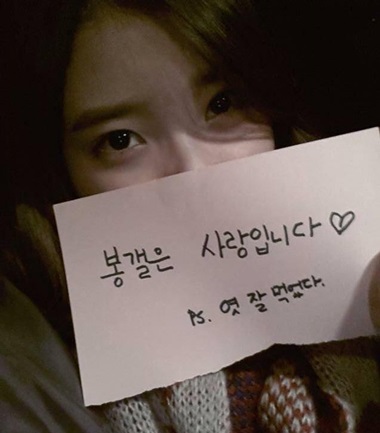 봉갤은 사랑입니다♡
ps. 엿 잘 먹었다.